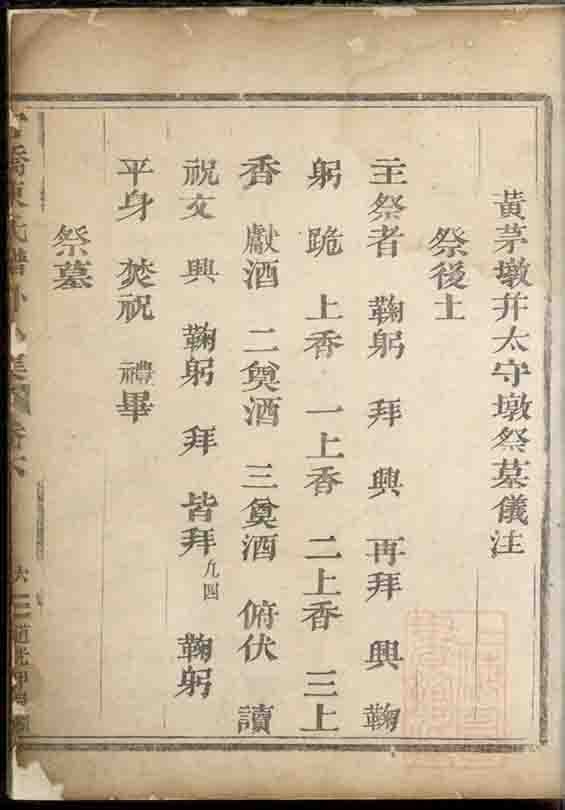 黃茅墩幷太守墩祭墓儀注
祭後土
主祭者 鞠躬 拜 興 再拜 興 鞠
躬 跪 上香 一上香 二上香 三上
香 獻酒 二奠酒 三奠酒 俯伏 讀
祝文 興 鞠躬 拜 皆拜 凡四 鞠躬
平身 焚祝 禮畢
祭墓
橋陳氏譜外 集 卷六
六 三 道光甲